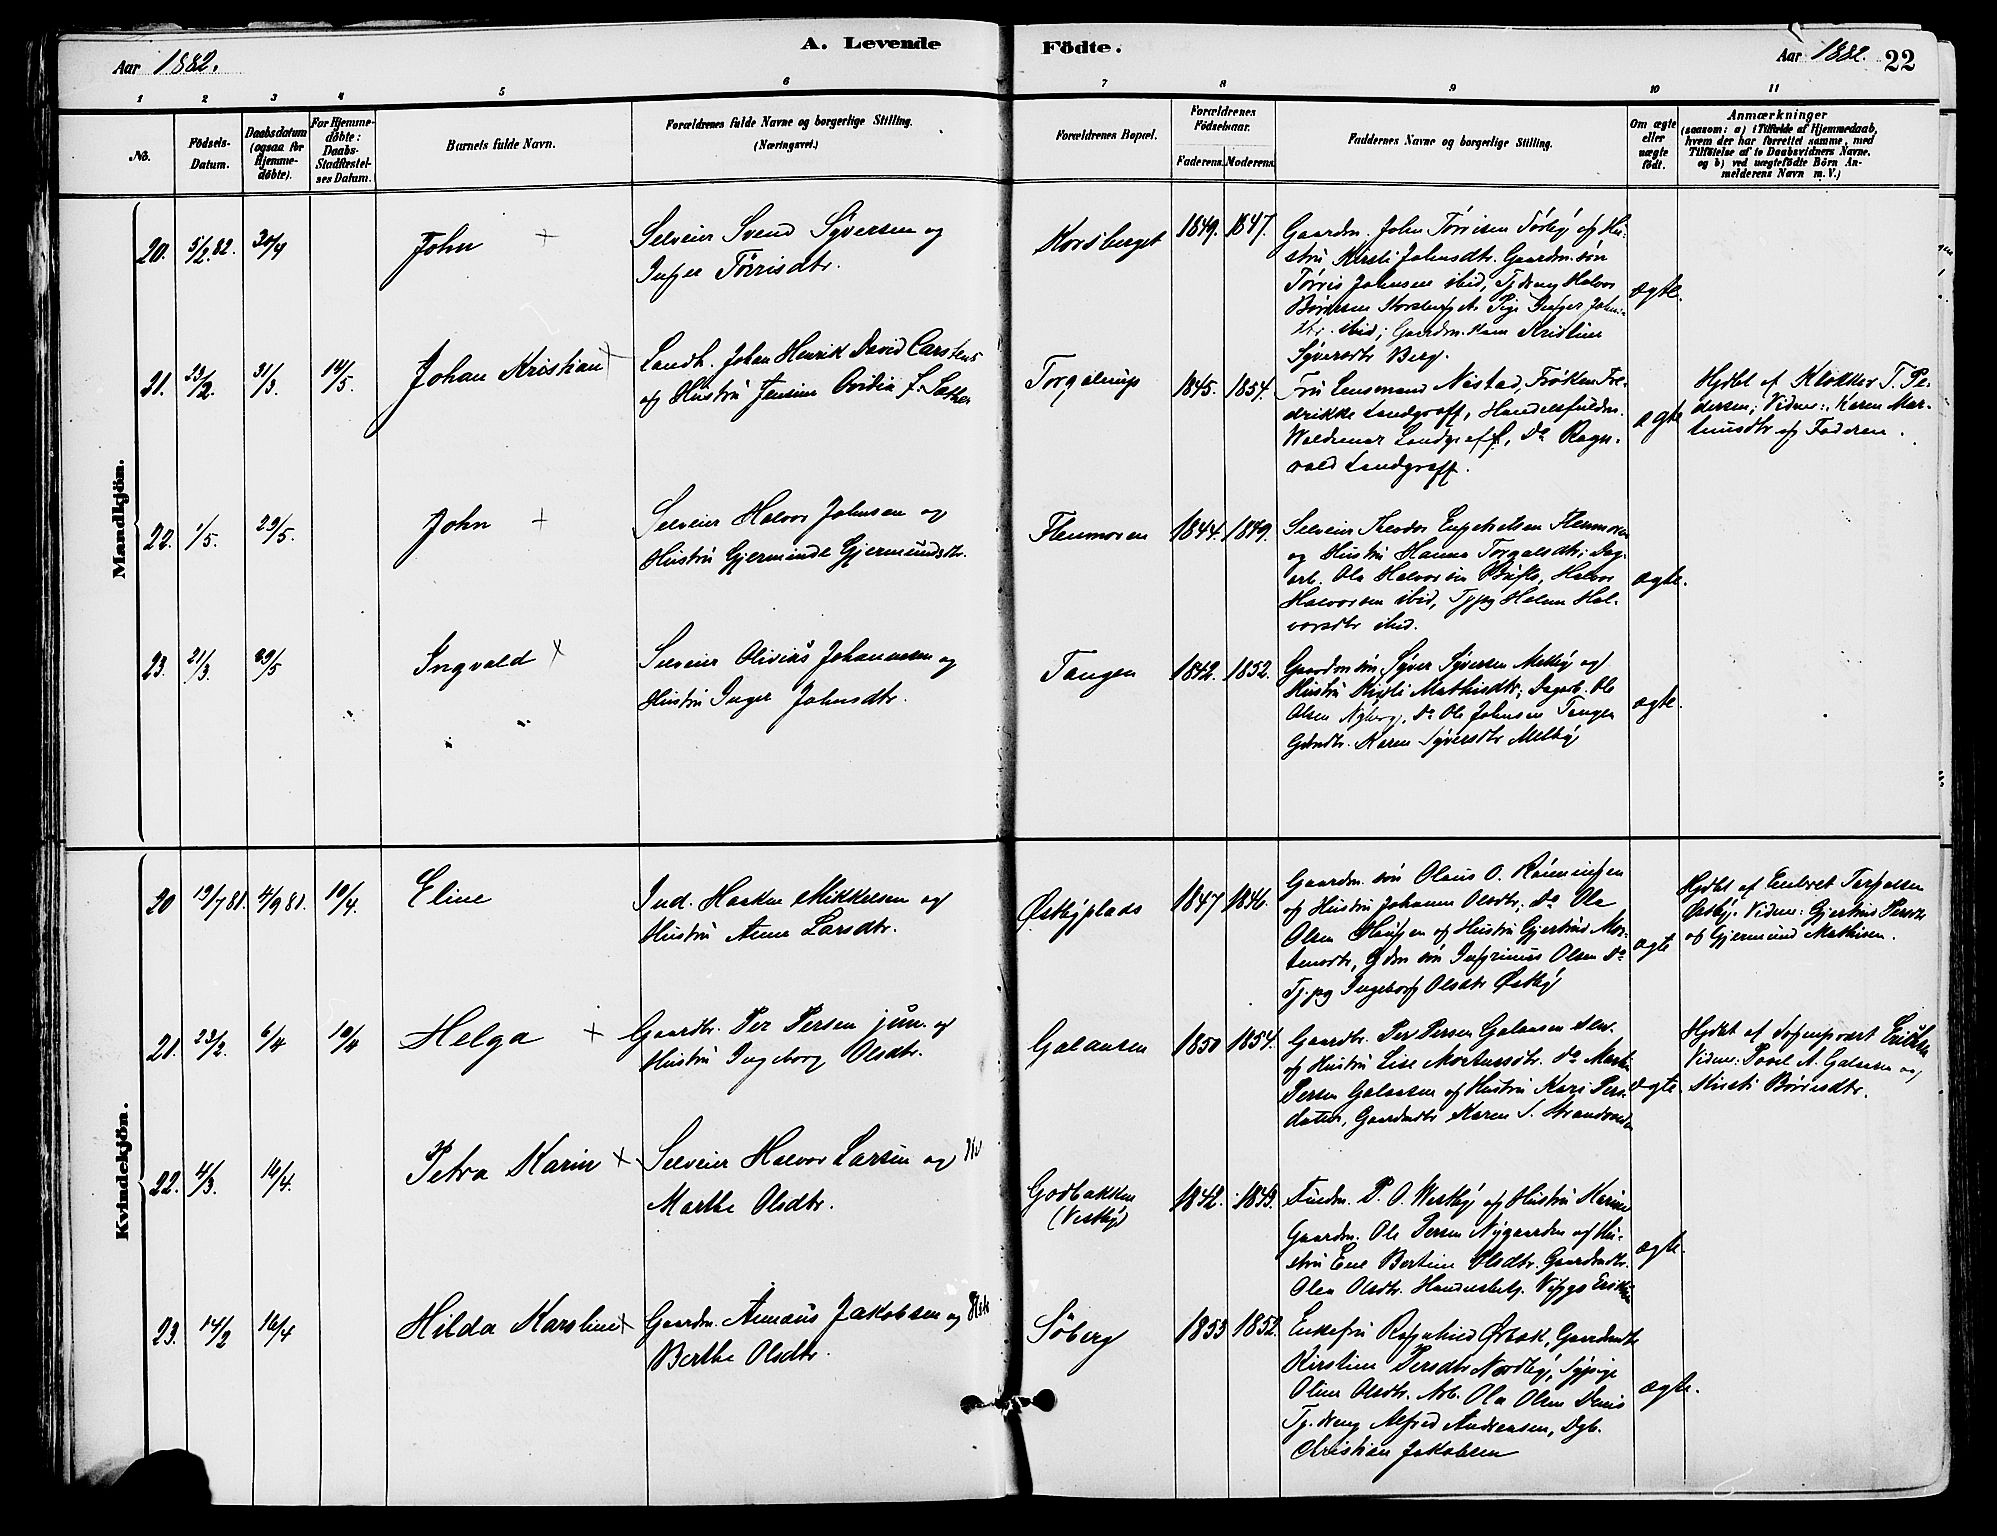 A. Levende Födte.
Aar 1882.
Aar 1882. 22
1 2 3 4 5 6 7 8 9 10 11
No.
Födsels-
Datum.
Daabsdatum
(ogsaa for
Hjemme-
döbte).
For Hjemme-
döbte:
Daabs-
Stadfæstel-
ses Datum.
Barnets fulde Navn.
Forældrenes fulde Navne og borgerlige Stilling.
(Næringsvei.)
Forældrenes Bopæl.
Forældrenes
Födselsaar.
Faderens. Moderens.
Faddernes Navne og borgerlige Stilling.
Om ægte
eller
uægte
födt.
Anmærkninger
(saasom: a) i Tilfælde af Hjemmedaab,
hvem der har forrettet samme, med
Tilföielse af to Daabsvidners Navne,
og b) ved uægtefödte Börn An-
melderens Navn m. V.)
Mandkjön.
20. 5/2.82. 30/4
John +
Selveier Svend Syversen og
Inger Törrisdtr.
Korsberget 1849. 1847.
Gaardm. John Törrisen Sörby og Hu-
stru Kersti Johnsdtr. Gaardm. sön
Törris Johnsen ibid, Tjdreng Halvor
Pige Inger Johns-
dtr. ibid; Kristine
Syversdtr Berg.
ægte.
21. 23/2. 31/3. 14/5.
Johan Kristian +
Landh. Johan Henrik David Carstens
og Hustru Jensine Ovidia f. Sæther
Torgalrup 1845. 1854.
Fru Lensmand Næstad, Fröken Fre-
drikke Landgraff, Handelsfuldm.
Waldemar Landgraff, Do Ragn-
vald Landgraff.
ægte
Hjdbt af Klokker T. Pe-
dersen; Vidner: Karen Mar-
tinusdtr og Faderen.
22. 1/5. 29/5.
John +
Selveier Halvor Johnsen og
Hustru Gjerminde Gjermundsdtr.
Flenmoen 1844. 1849.
Selveier Theodor Engebretsen Flenmoen
og Hustru Hanna Torgalsdtr; Dag-
arb. Ole Halvorsen Halvor
Halvorsen ibid, Tjpig Helene Hal-
vorsdtr ibid.
ægte.
23. 21/3. 29/5
Ingvald +
Selveier Olivius Johannesen og
Hustru Inger Johnsdtr.
Tangen 1842. 1852.
Gaardm sön Syver Syversen Melby og
Hustru Mathisdtr; Dagarb. Ole
Olsen Nyberg, Do Ole Johnsen Tangen
Gdmdtr. Karen Syversdtr Melby
ægte.
Kvindekjön.
20 19/7 81. 4/9 81. 10/4.
Eline
Ind. Haaken Mikkelsen og
Hustru Anne Larsdtr.
Østbyplads 1847 1846.
Gaardm. sön Olaus O. Rönningen
og Hustru Johanne Olsdtr; Do Ole
Olsen og Hustru Gjertrud Mor-
tensdtr, Gdm sön Ingvinius Olsen Do
Tj.pig Ingeborg Olsdtr Østby
ægte
Hjdbt af Embret Torgalsen
Østby. Vidner: Gjertrud Persdtr
og Gjermund Mathisen.
21. 23/2. 6/4 10/4
Helga +
Gaardbr. Per Persen jun. og
Hustru Ingeborg Olsdtr.
Galaasen 1850 1854.
Gaardbr. Per Persen Galaasen sen.
og Hustru Lise Mortensdtr. Do Martin
Persen Galaasen og Hustru Kari Pers-
datter, Gaardmdtr Karen S. Strandvolden
ægte.
Hjdbt af
Vidner: Povel A. Galaasen og
Kirsti Börresdtr.
22. 4/3. 16/4.
Petra Karin +
Selveier Halvor Larsen og Hu
Marthe Olsdtr.
Godbakken
(Vestby) 1842. 1843.
P. O. Westby og Hustru Karine
Gaardm. Ole Persen Nygaarden og Hu-
stru Ene Bertine Olsdtr. Gaardmdtr.
Olea Olsdtr. Viggo Eriksen
ægte.
23. 14/2 16/4
Hilda Karoline +
Gaardm. Annæus Jakobsen og Hstr
Berthe Olsdtr.
Söberg 1853 1852.
Enkefru Ragnhild Ørbæk, Gaardmdtr
Kirstine Persdtr Nordby, Sypige
Oline Olsdtr. Arb. Ola Olsen Denis
Tj.dreng Alfred Andreassen, Dgb.
Christian Jakobsen
ægte.